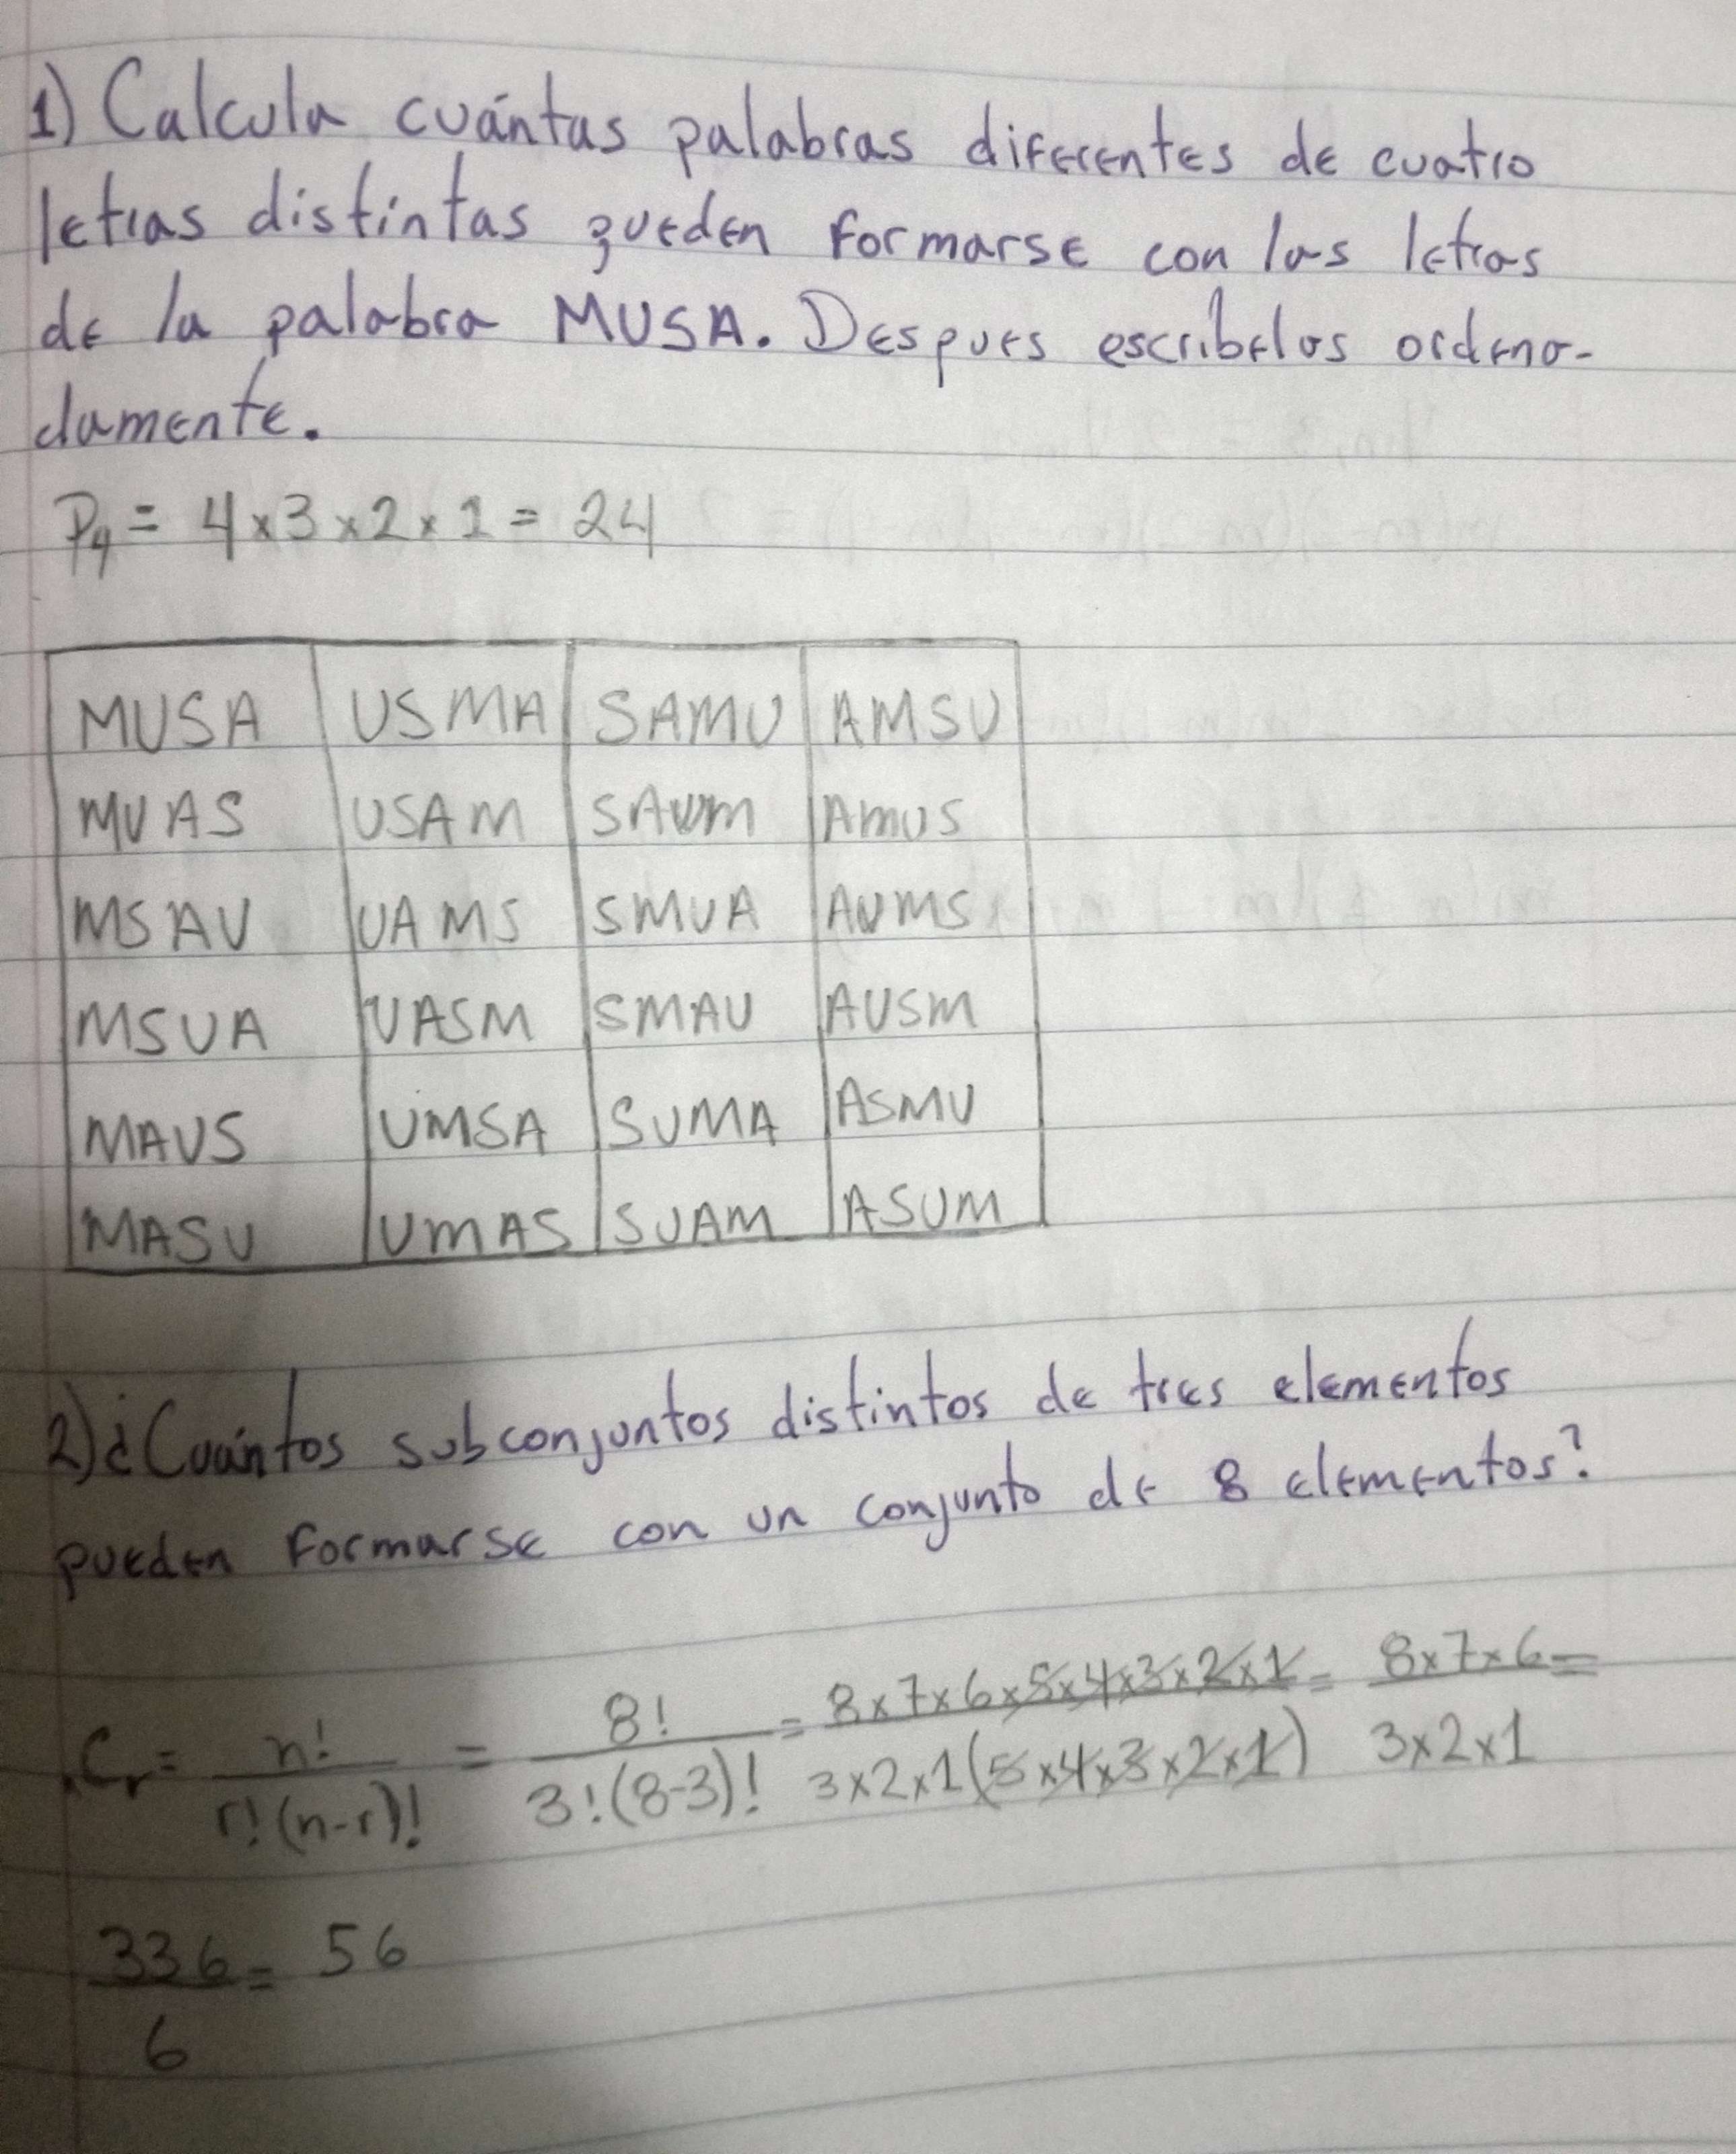 1) Calcula cuántas palabras diferentes de cuatro
letras distintas pueden formarse con las letras
de la palabra MUSA. Despues escribelas ordena-
damente.
P4 = 4x3x2x1 = 24
MUSA USMA SAMU AMSU
MUAS USAM SAUM AMUS
MSAU UAMS SMUA AUMS
MSUA UASM SMAU AUSM
MAUS UMSA SUMA ASMU
MASU UMAS SUAM ASUM
2) ¿Cuántos subconjuntos distintos de tres elementos
pueden formarse con un conjunto de 8 elementos?
nCr = n! / r!(n-r)! = 8! / 3!(8-3)! = 8x7x6x5x4x3x2x1 / 3x2x1(5x4x3x2x1) = 8x7x6 / 3x2x1 =
336 / 6 = 56